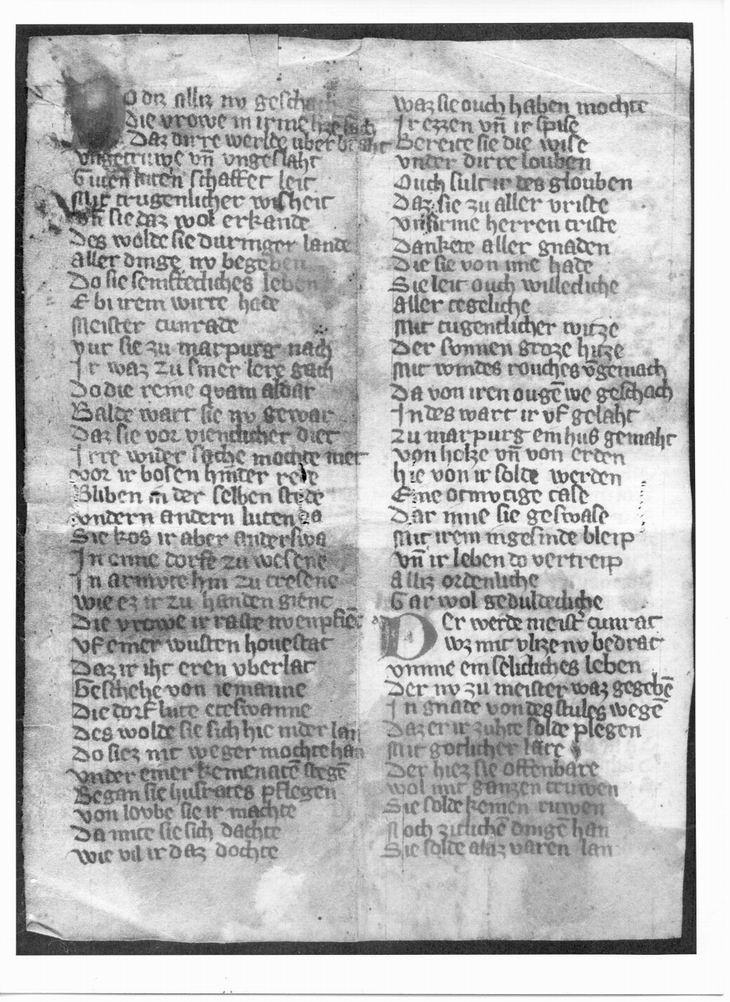 Do diz alliz nv geschach
Die vrowe in irme
Daz dirre werlde uber bracht
vngetruwe vn̄ vngeslaht
Guten luten schaffet leit
Mit trugenlicher wisheit
Vn̄ sie daz wol erkande
Des wolde sie duringer lande
aller dinge nv begeben
Do sie semftecliches leben
E bi irem wirte hade
Meister cunrade
vur sie zu marpurg nach
Ir waz zu siner lere gach
Do die reine quam aldar
Balde wart sie nv gewar
Daz sie vor vientlicher diet
Irre wider sache mochte niet
vor ir bosen hinder rede
Bliben in der selben stede
vndern andern luten da
Sie kos ir aber anderswa
In eime dorfe zu wesene
In armvte hin zu tresene
wie ez ir zu handen gienc
Die vrowe ir raste nv enpfienc
vf einer wusten houestat
Daz ir iht eren vberlat
Geschehe von iemanne
Die dorf lute eteswanne
Des wolde sie sich hie nider lan
Do siez nit weger mochte han
vnder einer kemenatē stegē
Began sie husrates pflegen
von lovbe sie ir machte
Da mite sie sich dachte
wie vil ir daz dochte
waz sie ouch haben mochte
Ir ezzen vn̄ ir spise
Bereite sie die wise
vnder dirre louben
Ouch sult ir des glouben
Daz sie zu aller vriste
vnsirme herren criste
Dankete aller gnaden
Die sie von ime hade
Sie leit ouch willecliche
aller tegeliche
Mit tugentlicher witze
Der sonnen groze hitze
Mit windes rouches v̄gemach
Da von iren ougē we geschach
Indes wart ir vf geslaht
zu marpurg ein hus gemaht
von holze vn̄ von erden
hie von ir solde werden
Eine otmvtige case
Dar inne sie geswase
Mit irem ingesinde bleip
vn̄ ir leben do vertreip
alliz ordenliche
Gar wol gedultecliche
Der werde meistˢ cunrat
wz mit vlize nv bedrat
vmme ein selicliches leben
Der nv zu meister waz gegebē
In gnade von des stules wegē
Daz er ir zuhte solde plegen
Mit gotlicher lare
Der hiez sie offenbare
wol mit ganzen truwen
Sie solde keinen ruwen
Noch zitlichē dingē han
Sie solde alaz varen lan